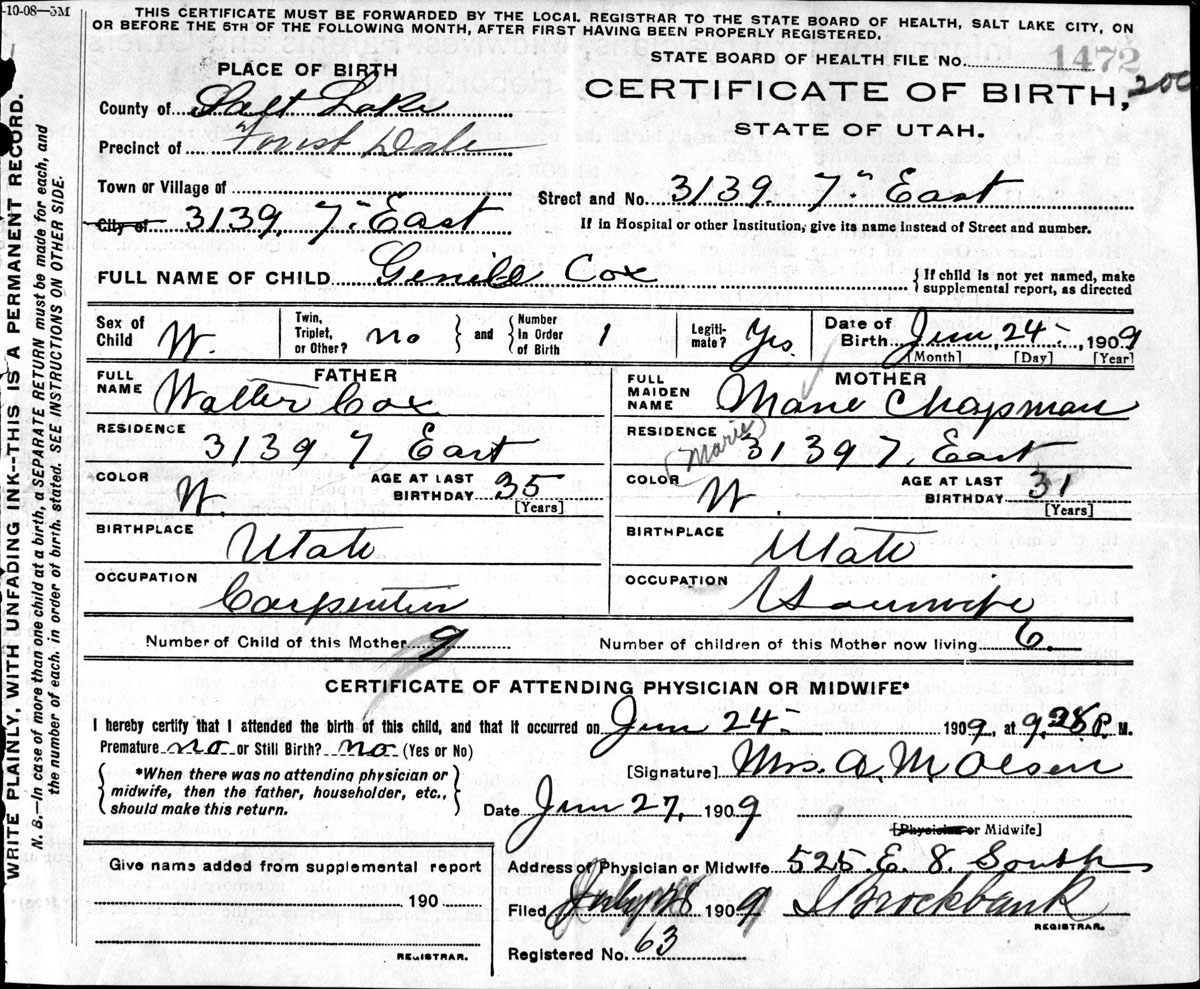 -10-08—5M
THIS CERTIFICATE MUST BE FORWARDED BY THE LOCAL REGISTRAR TO THE STATE BOARD OF HEALTH, SALT LAKE CITY, ON
OR BEFORE THE 5TH OF THE FOLLOWING MONTH, AFTER FIRST HAVING BEEN PROPERLY REGISTERED.
STATE BOARD OF HEALTH FILE NO. 1472
200
PLACE OF BIRTH
CERTIFICATE OF BIRTH,
STATE OF UTAH.
County of Salt Lake
Precinct of Forist Dale
Town or Village of
Street and No. 3139. 7" East
City of 3139, 7" East
If in Hospital or other Institution, give its name instead of Street and number.
FULL NAME OF CHILD Cox
{If child is not yet named, make
supplemental report, as directed
Sex of Child W.
Twin, Triplet, or Other? no } and { Number in Order of Birth 1
Legiti-mate? Yes.
Date of Birth Jun, 24 1909
[Month] [Day] [Year]
FATHER
FULL NAME Walter Cox
RESIDENCE 3139 7 East
COLOR W.
AGE AT LAST BIRTHDAY 35
[Years]
BIRTHPLACE Utah
OCCUPATION Carpenter
MOTHER
FULL MAIDEN NAME Marie Chapman
(Marie)
RESIDENCE 3139 7, East
COLOR W.
AGE AT LAST BIRTHDAY 31
[Years]
BIRTHPLACE Utah
OCCUPATION Housewife
Number of Child of this Mother 9
Number of children of this Mother now living 6.
CERTIFICATE OF ATTENDING PHYSICIAN OR MIDWIFE*
I hereby certify that I attended the birth of this child, and that it occurred on Jun 24- 1909, at 9,28 P. M.
Premature no or Still Birth? no (Yes or No)
{*When there was no attending physician or
midwife, then the father, householder, etc.,
should make this return.}
[Signature] Mrs. A. M Olsen
Date Jun 27, 1909
[Physician or Midwife]
Address of Physician or Midwife 525. E. 8. South
Filed July 1909 Brockbank
REGISTRAR.
Registered No. 63
Give name added from supplemental report
190
REGISTRAR.
WRITE PLAINLY, WITH UNFADING INK---THIS IS A PERMANENT RECORD.
N. B.—In case of more than one child at a birth, a SEPARATE RETURN must be made for each, and
the number of each, in order of birth, stated. SEE INSTRUCTIONS ON OTHER SIDE.